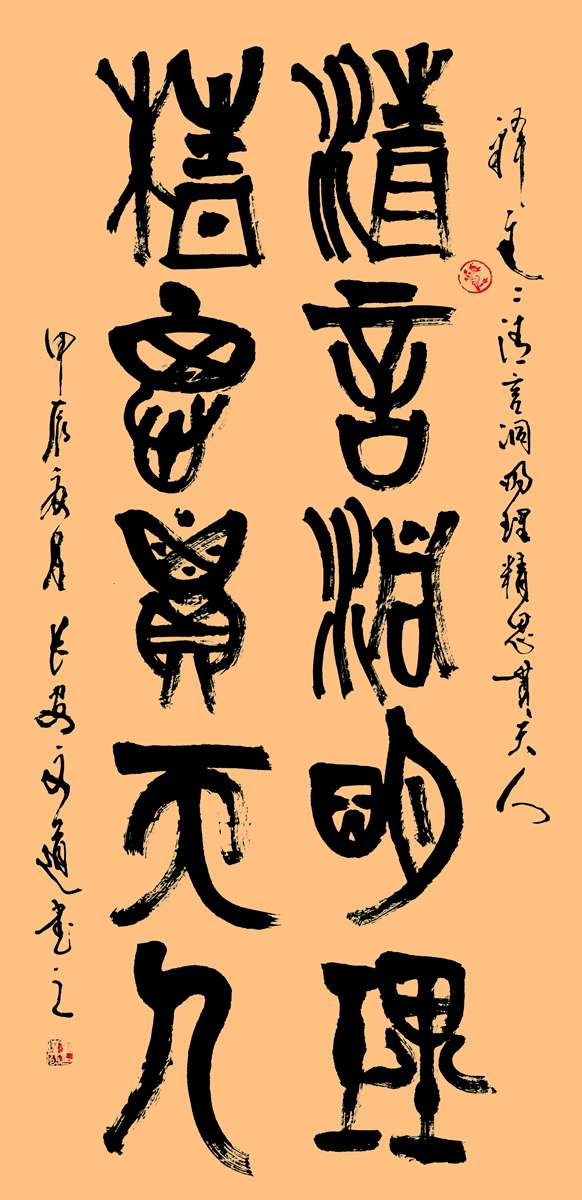 釋清言洞明理精思貫天人
清言洞明理
精思貫天人
甲辰夏月长安文道書之